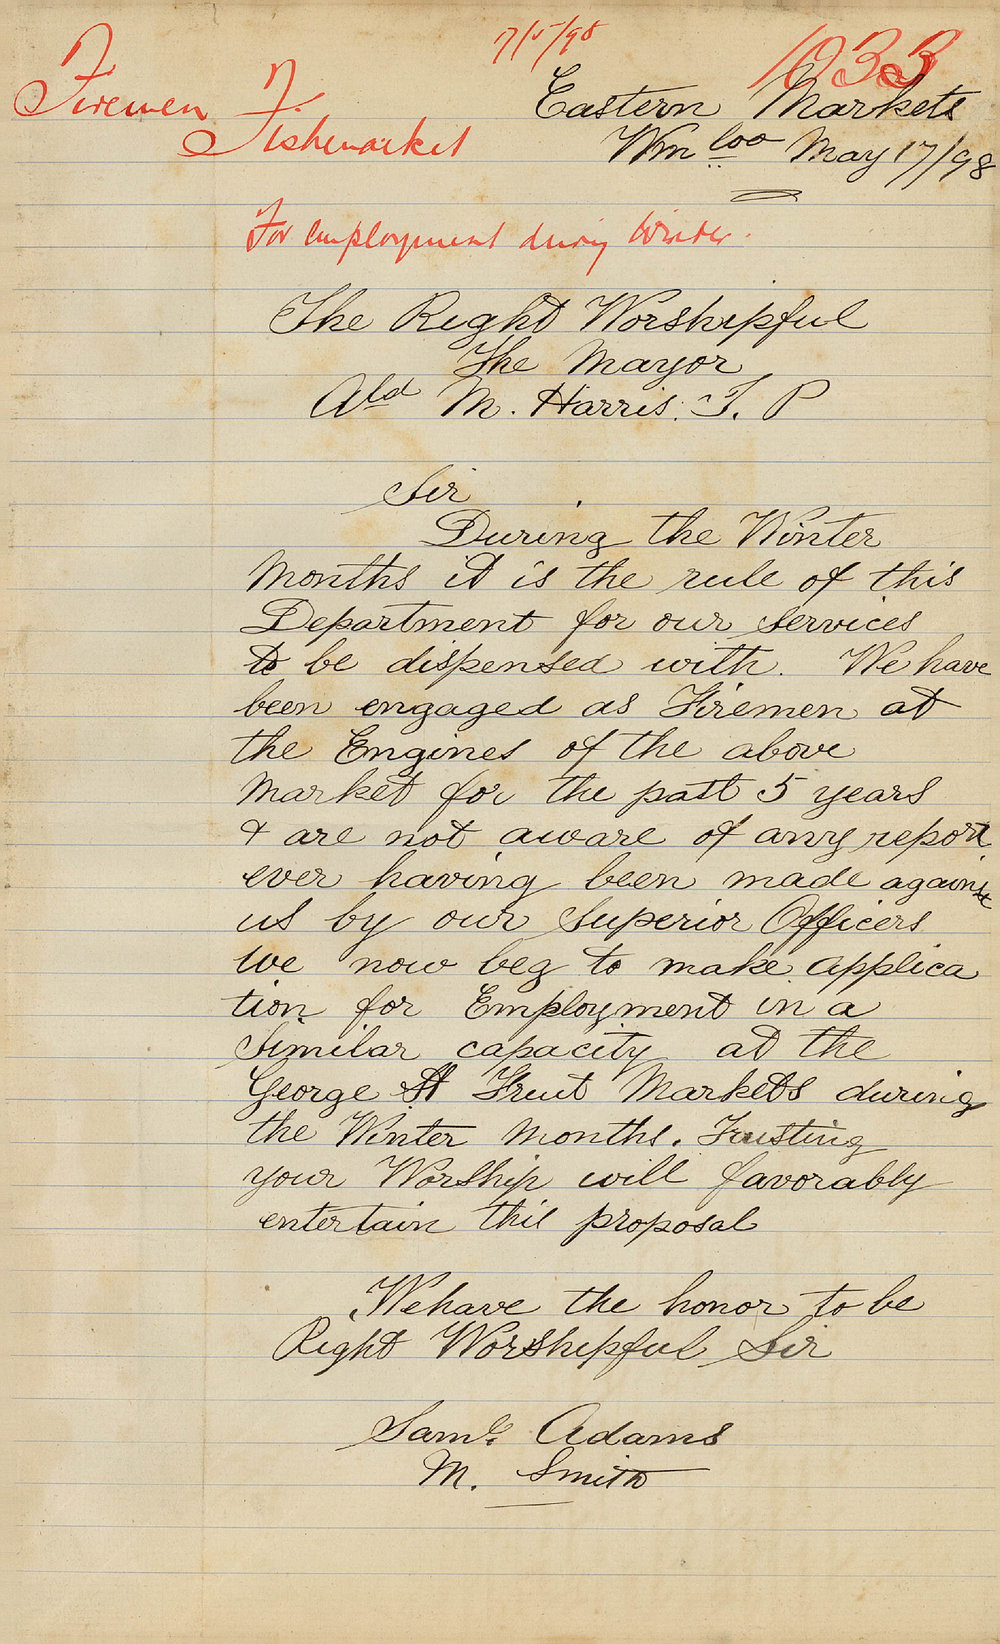 7/5/98
1033
Firemen
Fishmarket
Eastern Markets
Wm loo May 17/98
For employment during Winter.
The Right Worshipful
The Mayor
Ald M. Harris. J. P
Sir
During the Winter
Months it is the rule of this
Department for our Services
to be dispensed with. We have
been engaged as Firemen at
the Engines of the above
Market for the past 5 years
& are not aware of any report
ever having been made against
us by our Superior Officers
We now beg to make applica
tion for Employment in a
Similar capacity at the
George St Fruit Markets during
the Winter Months. Trusting
your Worship will favorably
entertain this proposal
We have the honor to be
Right Worshipful Sir
Saml. Adams
M. Smith